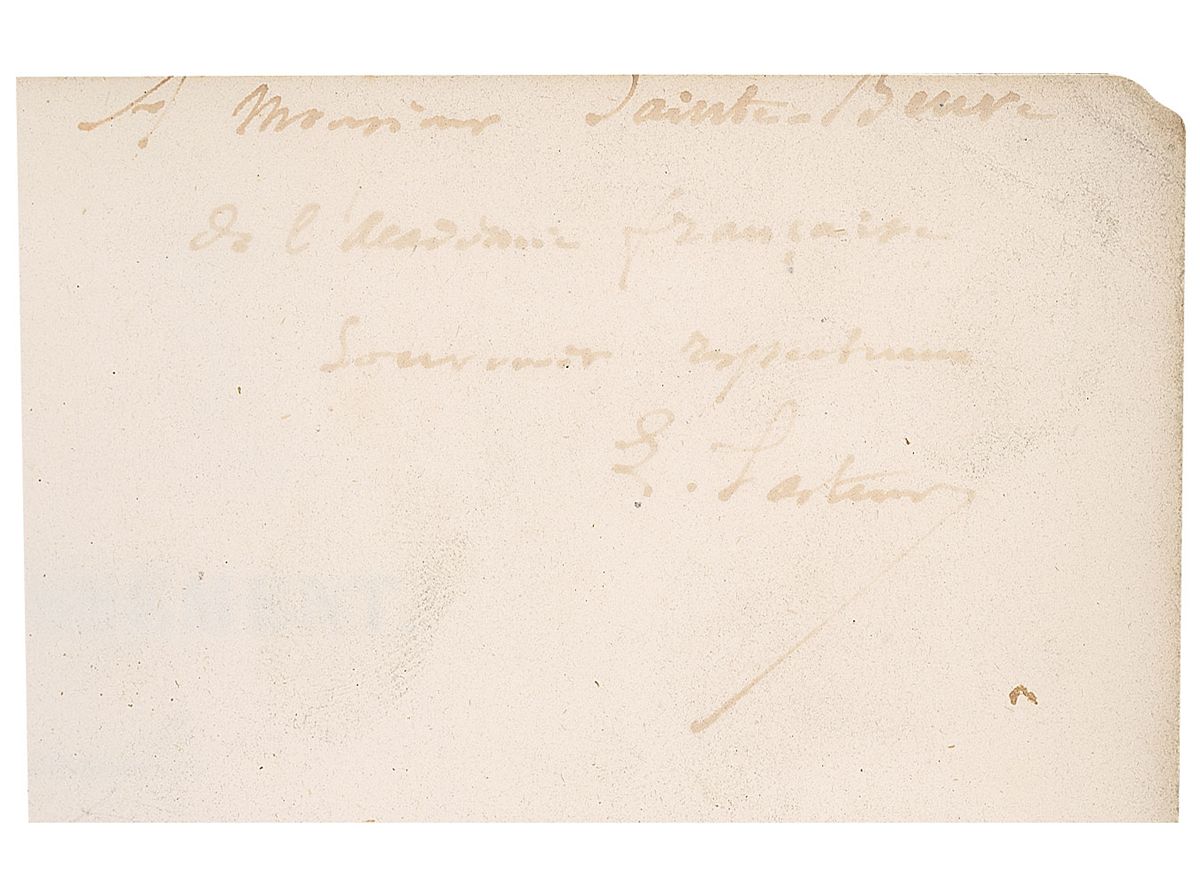 A Monsieur Sainte-Beuve
de l'académie française
Souvenir respectueux
L. Pasteur